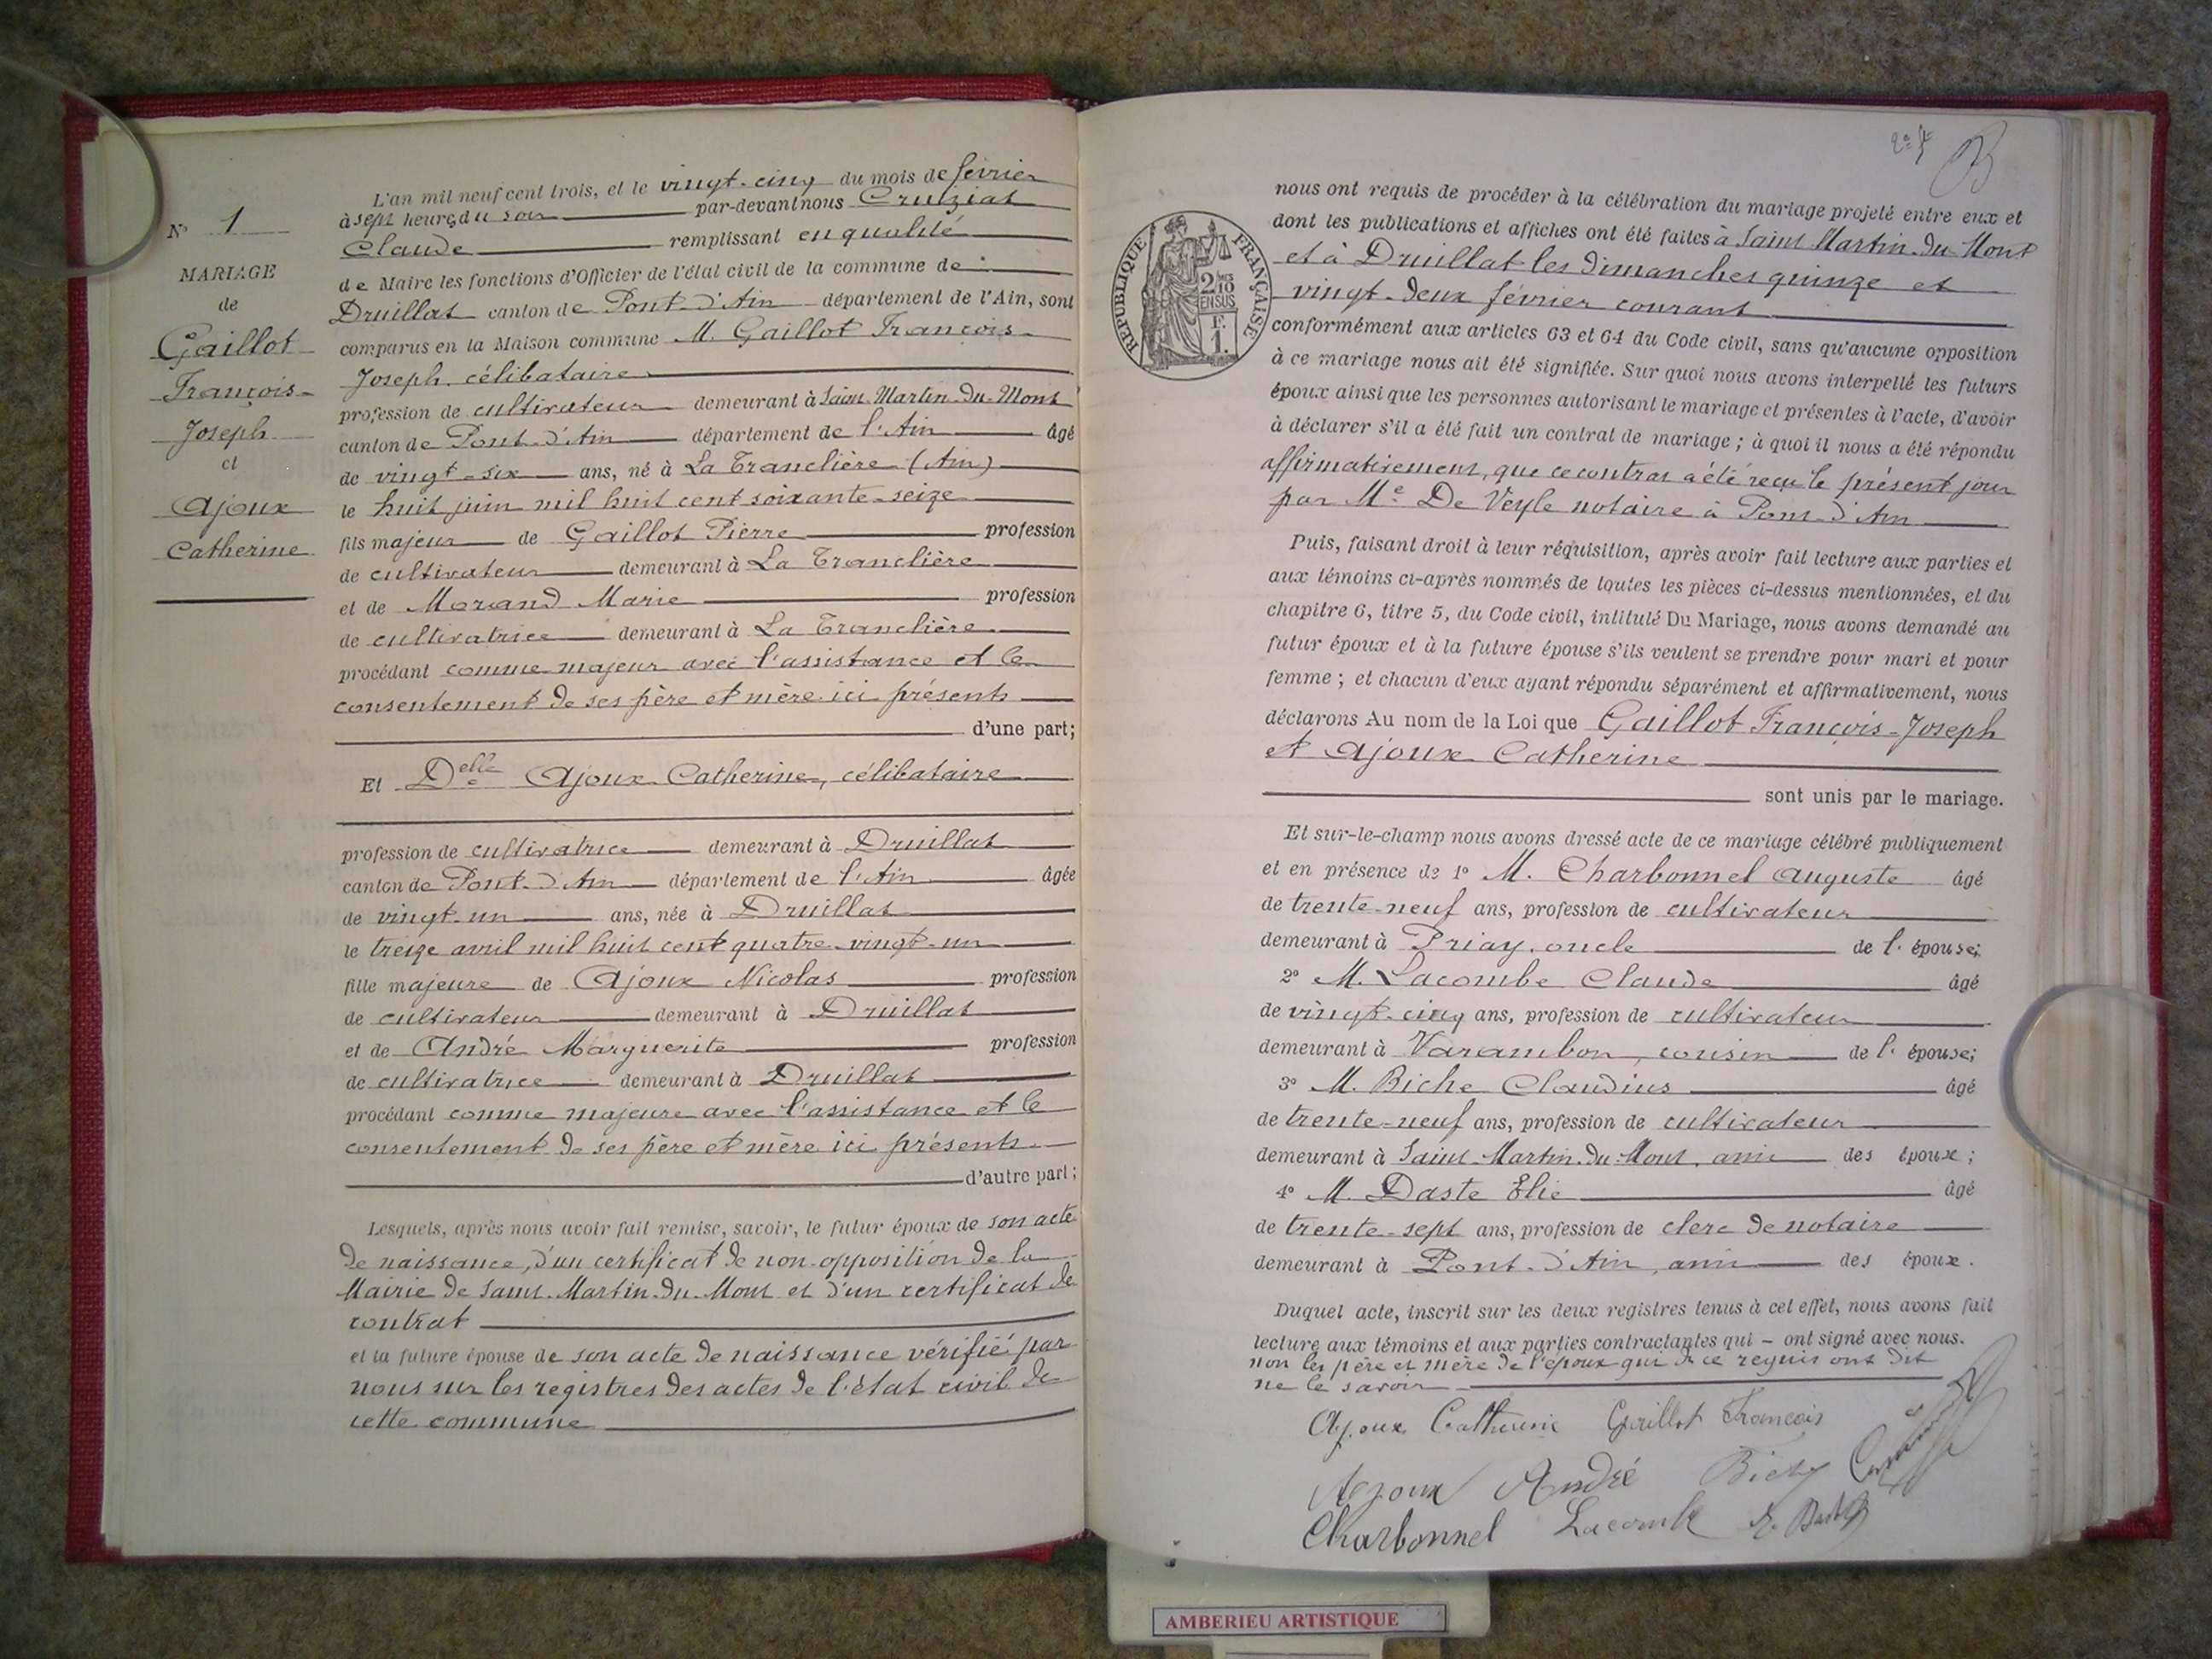 N° 1
MARIAGE
de
Gaillot
François-
Joseph
et
Ajoux
Catherine
L'an mil neuf cent trois, et le vingt-cinq du mois de février
à sept heures du soir par-devant nous Cruiziat
Claude remplissant en qualité
de Maire les fonctions d'Officier de l'état civil de la commune de
Druillat canton de Pont-d'Ain département de l'Ain, sont
comparus en la Maison commune M. Gaillot François-
Joseph, célibataire
profession de cultivateur demeurant à Saint-Martin-du-Mont
canton de Pont-d'Ain département de l'Ain âgé
de vingt-six ans, né à La Tranclière (Ain)
le huit juin mil huit cent soixante-seize
fils majeur de Gaillot Pierre profession
de cultivateur demeurant à La Tranclière
et de Morand Marie profession
de cultivatrice demeurant à La Tranclière
procédant comme majeur avec l'assistance et le
consentement de ses père et mère ici présents
d'une part;
Et Delle Ajoux Catherine, célibataire
profession de cultivatrice demeurant à Druillat
canton de Pont-d'Ain département de l'Ain âgée
de vingt-un ans, née à Druillat
le treize avril mil huit cent quatre-vingt-un
fille majeure de Ajoux Nicolas profession
de cultivateur demeurant à Druillat
et de André Marguerite profession
de cultivatrice demeurant à Druillat
procédant comme majeure avec l'assistance et le
consentement de ses père et mère ici présents
d'autre part;
Lesquels, après nous avoir fait remise, savoir, le futur époux de son acte
de naissance, d'un certificat de non-opposition de la
Mairie de Saint-Martin-du-Mont et d'un certificat de
contrat
et la future épouse de son acte de naissance vérifié par
nous sur les registres des actes de l'état civil de
cette commune
nous ont requis de procéder à la célébration du mariage projeté entre eux et
dont les publications et affiches ont été faites à Saint Martin-du-Mont
et à Druillat les dimanches quinze et
vingt-deux février courant
RÉPUBLIQUE FRANÇAISE
2/10 EN SUS
F. 1.
conformément aux articles 63 et 64 du Code civil, sans qu'aucune opposition
à ce mariage nous ait été signifiée. Sur quoi nous avons interpellé les futurs
époux ainsi que les personnes autorisant le mariage et présentes à l'acte, d'avoir
à déclarer s'il a été fait un contrat de mariage; à quoi il nous a été répondu
affirmativement, que ce contrat a été reçu le présent jour
par Me De Veyle notaire à Pont-d'Ain
Puis, faisant droit à leur réquisition, après avoir fait lecture aux parties et
aux témoins ci-après nommés de toutes les pièces ci-dessus mentionnées, et du
chapitre 6, titre 5, du Code civil, intitulé Du Mariage, nous avons demandé au
futur époux et à la future épouse s'ils veulent se prendre pour mari et pour
femme; et chacun d'eux ayant répondu séparément et affirmativement, nous
déclarons Au nom de la Loi que Gaillot François-Joseph
et Ajoux Catherine
sont unis par le mariage.
Et sur-le-champ nous avons dressé acte de ce mariage célébré publiquement
et en présence de 1° M. Charbonnel Auguste âgé
de trente-neuf ans, profession de cultivateur
demeurant à Priay, oncle de l'épouse;
2° M. Lacombe Claude âgé
de vingt-cinq ans, profession de cultivateur
demeurant à Varambon, cousin de l'épouse;
3° M. Biche Claudius âgé
de trente-neuf ans, profession de cultivateur
demeurant à Saint-Martin-du-Mont, ami des époux;
4° M. Daste Elie âgé
de trente-sept ans, profession de clerc de notaire
demeurant à Pont-d'Ain, ami des époux.
Duquel acte, inscrit sur les deux registres tenus à cet effet, nous avons fait
lecture aux témoins et aux parties contractantes qui - ont signé avec nous.
non les père et mère de l'époux qui de ce requis ont dit
ne le savoir
Ajoux Catherine Gaillot François
Ajoux André
Charbonnel Lacombe E. Daste
AMBERIEU ARTISTIQUE